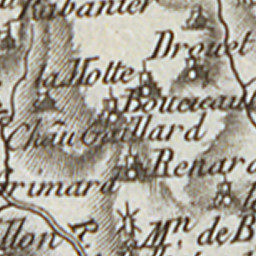 Rabanier
Drouet
la Motte
Boucicault
Chau Gaillard
Renard
rimard
llon
Mn de B